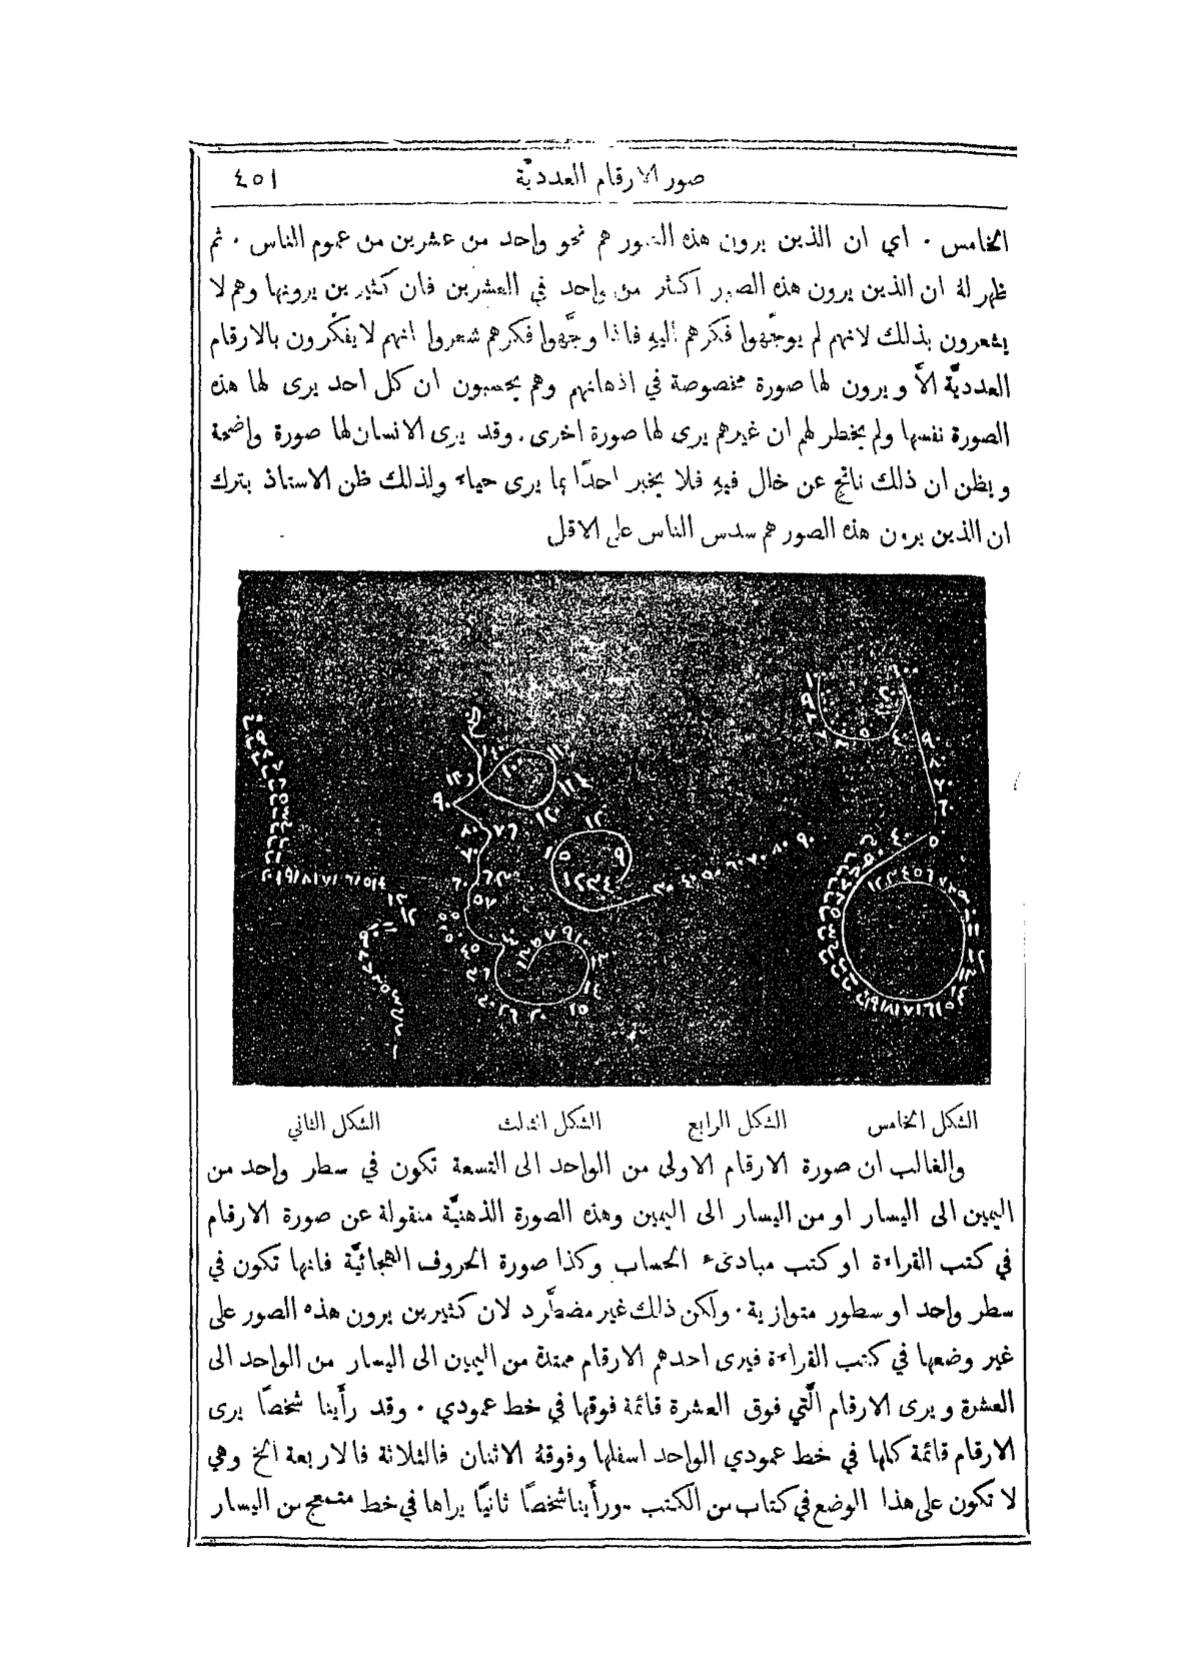 صور الارقام العدديَّة
٤٥١
الخامس . اي ان الذين يرون هذه الصور هم نحو واحد من عشرين من عموم الناس . ثم
ظهر لهُ ان الذين يرون هذه الصور اكثر من واحد في العشرين فان كثيرين يرونها وهم لا
يشعرون بذلك لانهم لم يوجّهوا فكرهم اليهِ فاذا وجَّهوا فكرهم شعروا انهم لا يفكّرون بالارقام
العدديَّة الاَّ ويرون لها صورة مخصوصة في اذهانهم وهم يحسبون ان كل احد يرى لها هذه
الصورة نفسها ولم يخطر لهم ان غيرهم يرى لها صورة اخرى . وقد يرى الانسان لها صورة واضحة
ويظن ان ذلك ناتج عن خلل فيهِ فلا يخبر احدًا بما يرى حياء ولذلك ظن الاستاذ بترك
ان الذين يرون هذه الصور هم سدس الناس على الاقل
الشكل الخامس الشكل الرابع الشكل الثالث الشكل الثاني
والغالب ان صورة الارقام الاولى من الواحد الى التسعة تكون في سطر واحد من
اليمين الى اليسار او من اليسار الى اليمين وهذه الصورة الذهنيَّة منقولة عن صورة الارقام
في كتب القراءة او كتب مبادىء الحساب وكذا صورة الحروف الهجائيَّة فانها تكون في
سطر واحد او سطور متوازية . ولكن ذلك غير مضطَّرد لان كثيرين يرون هذه الصور على
غير وضعها في كتب القراءة فيرى احدهم الارقام ممتدة من اليمين الى اليسار من الواحد الى
العشرة ويرى الارقام الَّتي فوق العشرة قائمة فوقها في خط عمودي . وقد رأَينا شخصًا يرى
الارقام قائمة كلها في خط عمودي الواحد اسفلها وفوقهُ الاثنان فالثلاثة فالاربعة الخ وهي
لا تكون على هذا الوضع في كتاب من الكتب . ورأَينا شخصًا ثانيًا يراها في خط متمعج من اليسار